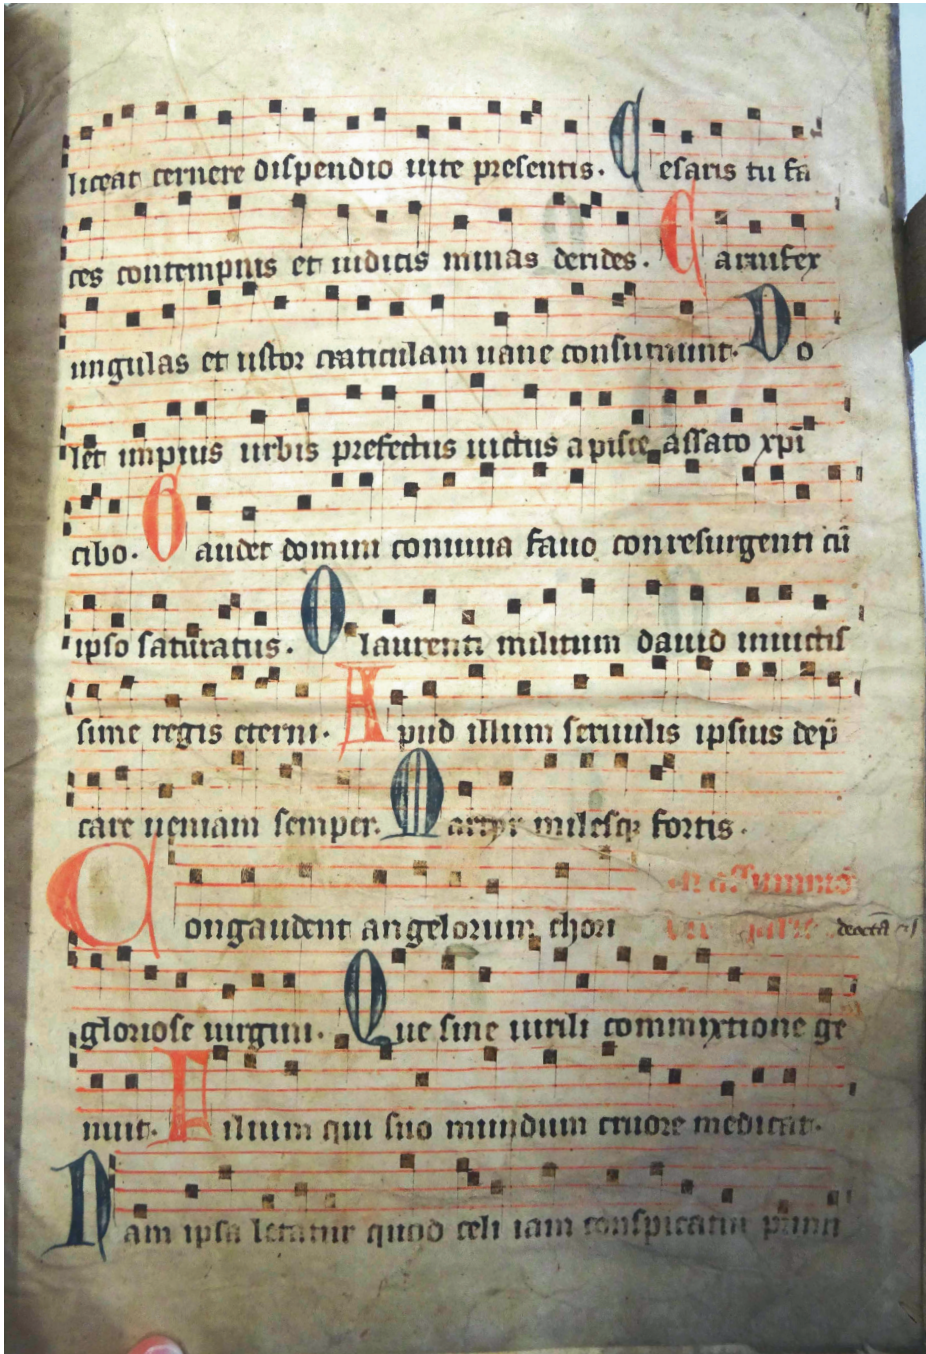 liceat cernere dispendio uite presentis. Cesaris tu fa
ces contempnis et iudicis minas derides. Carnifex
ungulas et ustor craticulam uane consumunt. Do
let impius urbis prefectus uictus a pisce assato xp̄i
cibo. Gaudet domini conuiua fauo conresurgenti cū
ipso saturatus. O laurenti militum dauid inuictis
sime regis eterni. Apud illum seruulis ipsius dep̄
care ueniam semper. Martyr milesqꝫ fortis.
Congaudent angelorum chori
gloriose uirgini. Que sine uirili commixtione ge
nuit. Filium qui suo mundum cruore medicat.
Nam ipsa letatur quod celi iam conspicatur